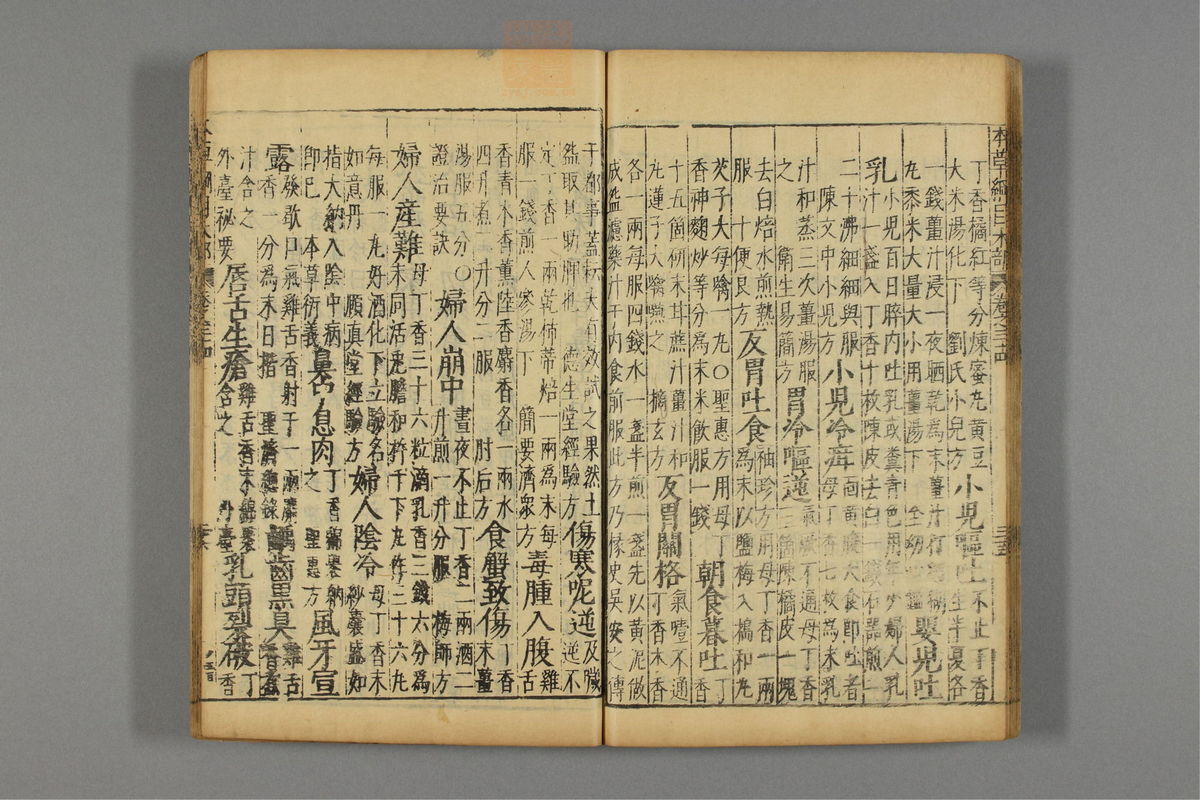 本草綱目木部 卷之三十四
丁香橘紅等分煉蜜丸黄豆
大米湯化下 劉氏小兒方 小兒嘔吐 不止丁香
生半夏各
一錢薑汁浸一夜晒乾為末薑汁打
丸黍米大量大小用薑湯下 全幼心鑑 嬰兒吐
乳 小兒百日晬内吐乳或糞青色用年少婦人乳
汁一盞入丁香十枚陳皮去白一錢石器煎一
二十沸細細與服 陳文中小兒方 小兒冷疳 面黄腹大食即吐者
母丁香七枚為末乳
汁和蒸三次薑湯服
之 衛生易簡方 胃冷嘔逆 氣厥不通母丁香
三箇陳橘皮一塊
去白焙水煎熱
服 十便良方 反胃吐食 袖珍方用母丁香一兩
為末以鹽梅入擣和丸
芡子大每噙一丸〇聖惠方用母丁
香神麴炒等分為末米飲服一錢 朝食暮吐 丁
香
十五箇研末甘蔗汁薑汁和
丸蓮子大噙嚥之 摘玄方 反胃關格 氣噎不通
丁香木香
各一兩每服四錢水一盞半煎一盞先以黄泥做
成盌濾藥汁于内食前服此方乃掾史吳安之傳
于都事蓋耘夫有效試之果然土
盌取其助脾也 德生堂經驗方 傷寒呃逆 及臟
逆不
定丁香一兩乾柿蒂焙一兩為末每
服一錢煎人參湯下 簡要濟衆方 毒腫入腹 雞
舌
香青木香薰陸香麝香各一兩水
四升煮二升分二服 肘后方 食蟹致傷 丁香
末薑
湯服五分〇
證治要訣 婦人崩中 晝夜不止丁香二兩酒二
升煎一升分服 梅師方
婦人産難 母丁香三十六粒滴乳香三錢六分為
末同活兔膽和杵千下丸作三十六丸
每服一丸好酒化下立驗名
如意丹 頤真堂經驗方 婦人陰冷 母丁香末
紗囊盛如
指大納入陰中病
即已 本草衍義 鼻中息肉 丁香綿裹納
之 聖惠方 風牙宣
露 發歇口氣雞舌香射干一兩麝
香一分為末日揩 聖濟總錄 齲齒黑臭 雞舌
香煮
汁含之
外臺祕要 唇舌生瘡 雞舌香末綿裹
含之 外臺 乳頭裂破 丁
香